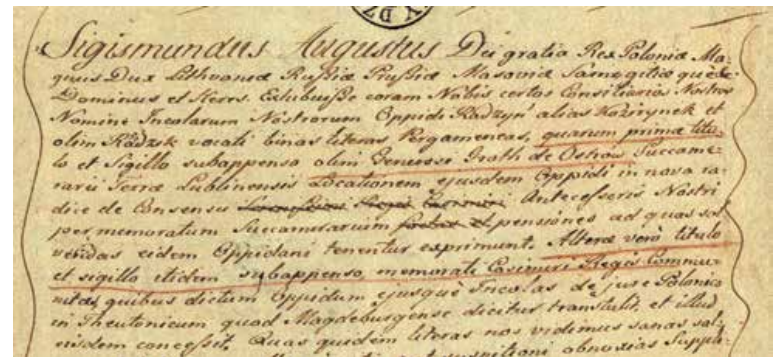 Sigismundus Augustus Dei gratia Rex Poloniæ Ma-
gnus Dux Lithvaniæ Rußiæ Prußiæ Masoviæ Samogitiæ què &c
Dominus et Herrs. Exhibuiße coram Nobis certos Consiliarios Nostros
Nomine Incolarum Nostrorum Oppidi Radzyń alias Kozirynek et
olim Radzik vocati binas literas Pergameneas, quarum prima titu-
lo et Sigillo subappenso olim Generosi Groth de Ostrów Succame-
rarii Terræ Lublinensis Locationem ejusdem Oppidi in nova ra-
dice de Consensu Casimiri Antecessoris Nostri
per memoratum Succamerarium et pensiones ad quas sol-
vendas eidem Oppidani tenentur exprimunt. Alteræ verò titulo
et sigillo itidem subappenso memorati Casimiri Regis Commu-
nitas, quibus dictum Oppidum ejusquè Incolas de jure Polonico
in Theutonicum quod Magdeburgense dicitur transtulit, et illud
eisdem conceßit. Quas quidem literas nos vidimus sanas sal-
suspitioni obnoxias Suppli-